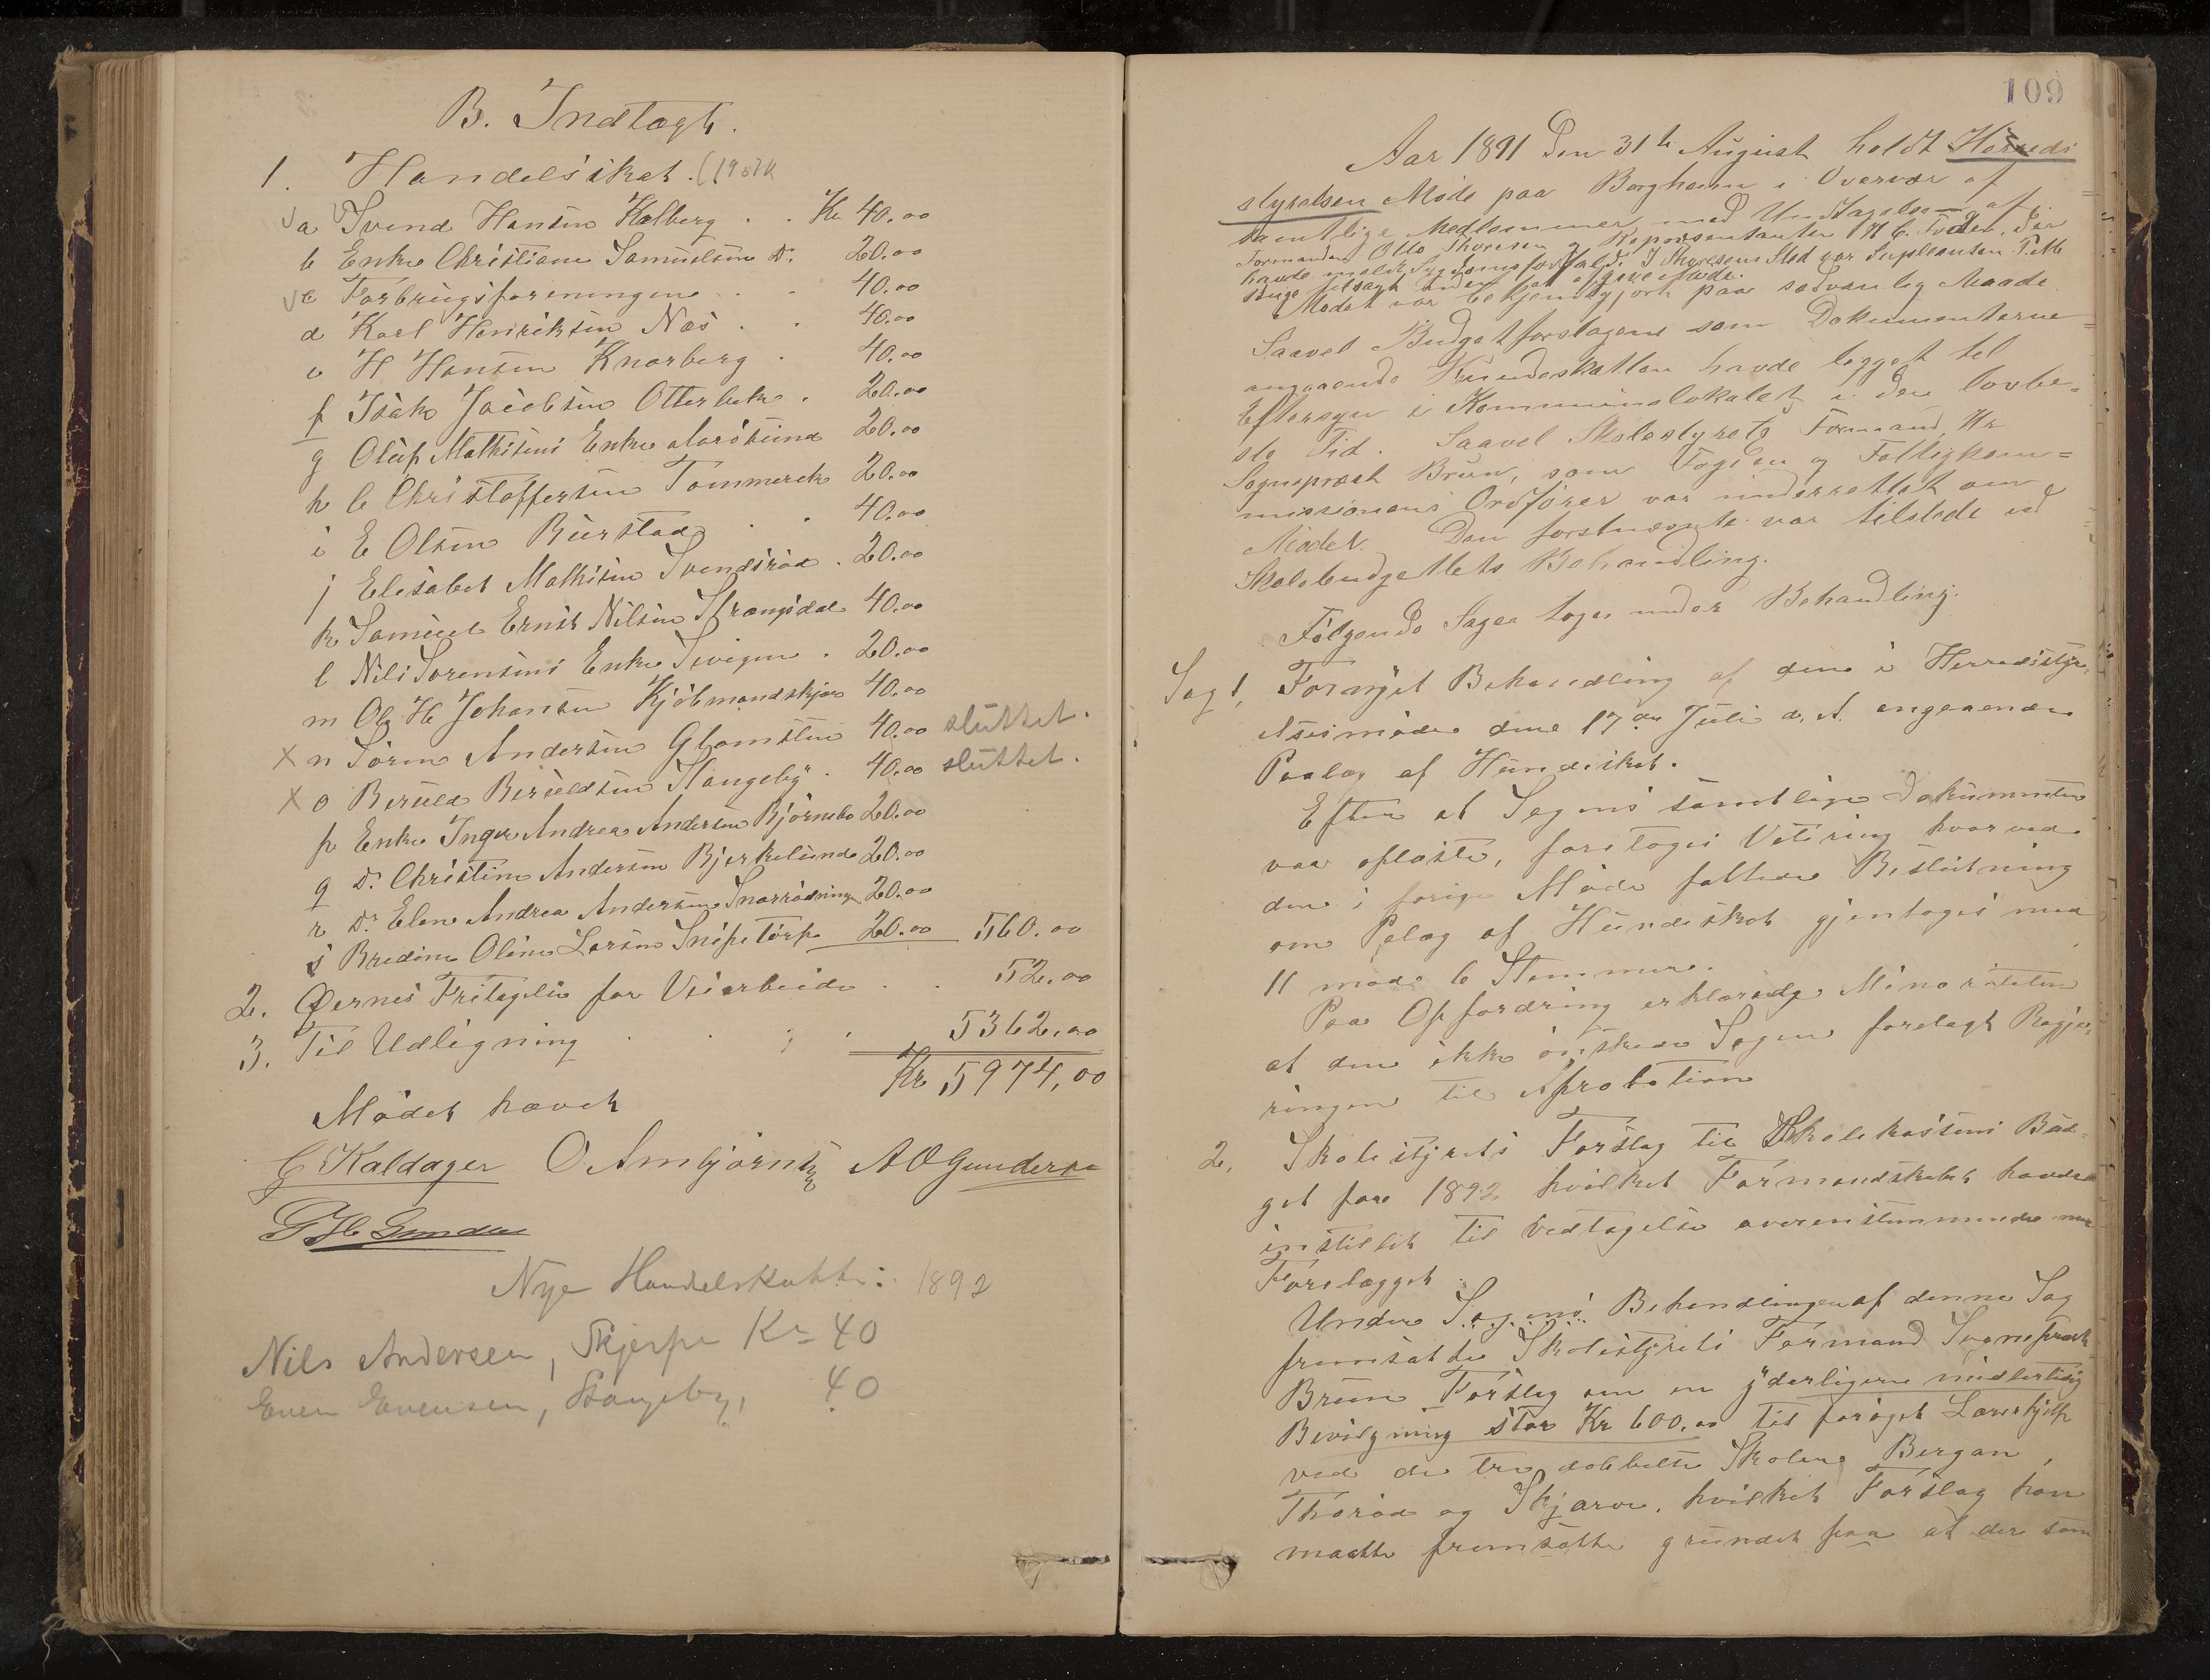 B. Indtægt.
1. Handelsskat. (19 stk
a Svend Hansen Kalberg . . Kr 40.00
b Enke Christiane Samuelsen Do. 20.00
c Forbrugsforeningen . . 40.00
d Karl Henriksen Næs . . 40.00
e H Hansen Knarberg . 40.00
f Isak Jacobsen Otterbek . 20.00
g Oluf Mathisens Enke Aarøsund 20.00
h C Christoffersen Tømmerek 20.00
i E Olsen Buerstad . . 40.00
j Elisabet Mathisen Svendsrød . 20.00
k Samuel Ernst Nilsen Strængsdal 40.00
l Nils Sørensens Enke . 20.00
m Ole H Johansen Kjøbmandskjær 40.00
x n Søren Andersen Glomsten 40.00 sluttet.
x o Beruld Beruldsen Stangeby . 40.00 sluttet.
p Enke Inger Andrea Andersen Bjørnebo 20.00
q Do. Christine Andersen Bjerkelunde 20.00
r Do. Elen Andrea Andersen 20.00
s Bredine Oline Larsen Snipetorp 20.00 560.00
2. Øernes Fritagelse for Veiarbeide . . 52.00
3. Til Udligning . . . 5362.00
Kr 5974,00
Mødet hævet
G Kaldager O Ambjørnsen A O Gundersen
Nye Handelsskatte: 1892
Nils Andersen, Skjerpe Kr 40
Even Evensen, Stangeby, 40
109
Aar 1891 den 31te August holdt Herreds
styrelsen Møde paa Borgheim i Overvær af
samtlige Medlemmer med Undtagelse af
Formanden Otto Thoresen og Repræsentanten H C. Tveden. Den
havde meldt Sygdomsforfald. I Thoresens Sted var Supleanten P. M
Bugge tilsagt uden at afgive Møde.
Mødet var bekjendtgjort paa sædvanlig Maade
Saavel Budgetforslagene som Dokumenterne
angaaende Hundeskatten havde ligget til
Eftersyn i Kommunelokalet i den lovbe=
ste Tid. Saavel Skolestyrets Formand, Hr
Sognepræst Bruun, som Fogden og Fattigkom=
missionens Ordfører var underrettet om
Mødet. Den førstnævnte var tilstede ved
Skolebudgettets Behandling.
Følgende Sager toges under Behandling.
Sag 1, Fornyet Behandling af den i Herredssty=
elsesmøde den 17de Juli d. A. angaaende
Paalæg af Hundeskat.
Efter at Sagens samtlige Dokumenter
var oplæste, foretoges Votering hvorved
den i forige Møde fattede Beslutning
om Pålæg af Hundeskat gjentoges med
11 mod 6 Stemmer.
Paa Opfordring erklærede Minoriteten
at den ikke ønskede Sagen forelagt Regje=
ringen til Aprobation
2, Skolestyrets Forslag til Skolekassens Bud=
get for 1892 hvilket Formandskabet havde
instillet til Vedtagelse overenstemmende med
Forelægget
Under Sagens Behandlingen af denne Sag
fremsatte Skolestyrets Formand Sognepræst
Bruun Forslag om en yderligere midlertidig
Bevilgning stor Kr 600.00 til forøget Lærerhjelp
ved de tre dobbelte Skolene Bergan,
Thorød og Skjærve, hvilket Forslag han
maatte fremsætte grundet paa at der som